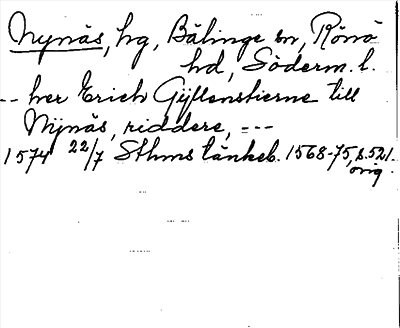 Nynäs, hg, Bälinge sn, Rönö
hd, Söderm. l.
-- her Erich Gyllenstierne till
Nijnäs, riddere, ---
1574 22/7 Sthms tänkeb. 1568-75, s. 521.
orig.